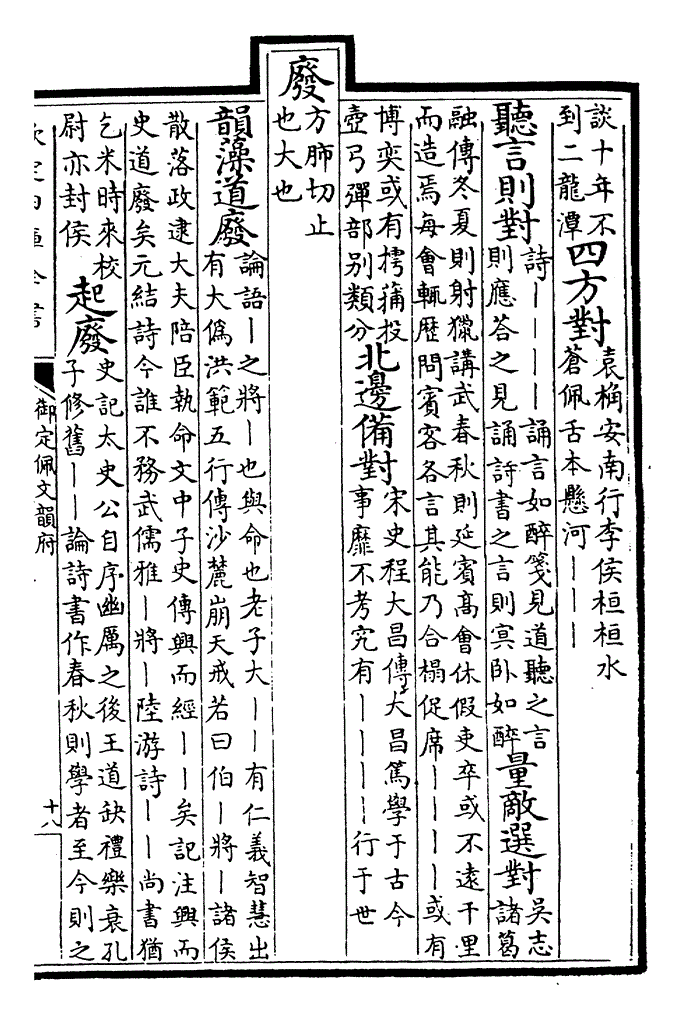 談十年不
到二龍潭
四方對
袁桷安南行李侯桓桓水
蒼佩舌本懸河丨丨丨
聽言則對
詩丨丨丨丨誦言如醉箋見道聽之言
則應答之見誦詩書之言則冥卧如醉
量敵選對
吳志
諸葛
融傳冬夏則射獵講武春秋則延賓髙會休假吏卒或不逺千里
而造焉每會輒歴問賓客各言其能乃合榻促席丨丨丨丨或有
博奕或有摴蒱投
壺弓彈部别類分
北邊備對
宋史程大昌傳大昌篤學于古今
事靡不考究有丨丨丨丨行于世
廢
方肺切止
也大也
韻藻道廢
論語丨之將丨也與命也老子大丨丨有仁義智慧出
有大偽洪範五行傳沙麓崩天戒若曰伯丨將丨諸侯
散落政逮大夫陪臣執命文中子史傳興而經丨丨矣記注興而
史道廢矣元結詩今誰不務武儒雅丨將丨陸游詩丨丨尚書猶
乞米時來校
尉亦封侯
起廢
史記太史公自序幽厲之後王道缺禮樂衰孔
子修舊丨丨論詩書作春秋則學者至今則之
欽定四庫全書
御定佩文韻府
十八